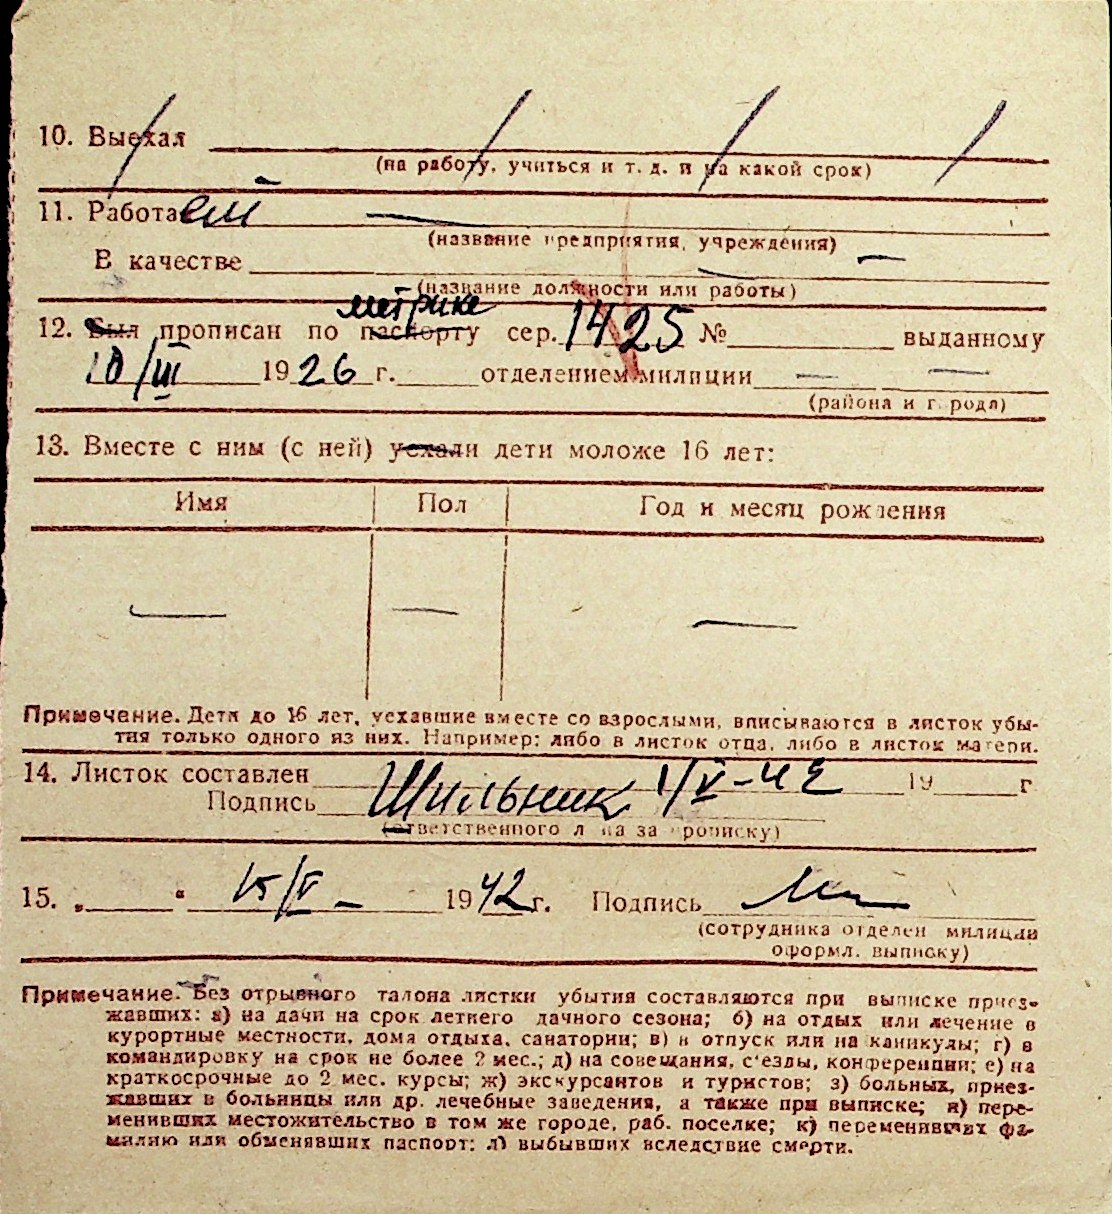 10. Выехал
(на работу, учиться и т. д. и на какой срок)
11. Работает
(название предприятия, учреждения)
В качестве
(название должности или работы)
метрике
12. Был прописан по паспорту сер. 1425 № выданному
10/III 1926 г. отделением милиции — —
(района и города)
13. Вместе с ним (с ней) уехали дети моложе 16 лет:
Имя Пол Год и месяц рождения
— — —
Примечание. Дети до 16 лет, уехавшие вместе со взрослыми, вписываются в листок убы-
тия только одного из них. Например: либо в листок отца, либо в листок матери.
14. Листок составлен 1/V-42 19 г
Подпись Шильник
(ответственного лица за прописку)
15. „ “ 15/V - 1942 г. Подпись
(сотрудника отделен милиции
оформл. выписку)
Примечание. Без отрывного талона листки убытия составляются при выписке приез-
жавших: а) на дачи на срок летнего дачного сезона; б) на отдых или лечение в
курортные местности, дома отдыха, санатории; в) в отпуск или на каникулы; г) в
командировку на срок не более 2 мес.; д) на совещания, с'езды, конференции; е) на
краткосрочные до 2 мес. курсы; ж) экскурсантов и туристов; з) больных, приез-
жавших в больницы или др. лечебные заведения, а также при выписке; и) пере-
менивших местожительство в том же городе, раб. поселке; к) переменивших фа-
милию или обменявших паспорт; л) выбывших вследствие смерти.